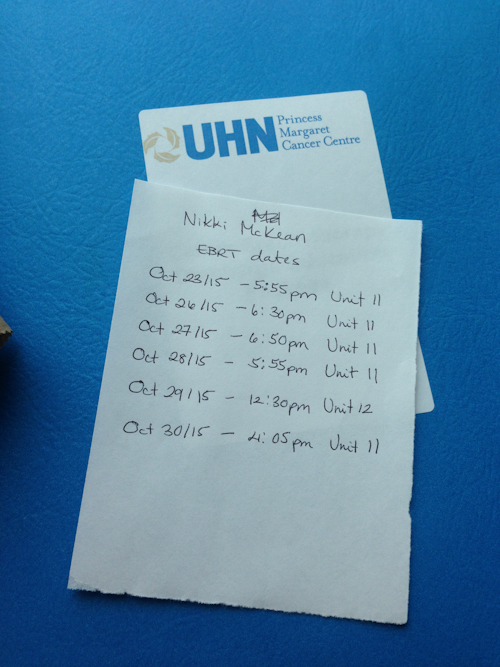 UHN Princess
Margaret
Cancer Centre
Nikki McKean
EBRT dates
Oct 23/15 - 5:55pm Unit 11
Oct 26/15 - 6:30pm Unit 11
Oct 27/15 - 6:50pm Unit 11
Oct 28/15 - 5:55pm Unit 11
Oct 29/15 - 12:30pm Unit 12
Oct 30/15 - 4:05pm Unit 11